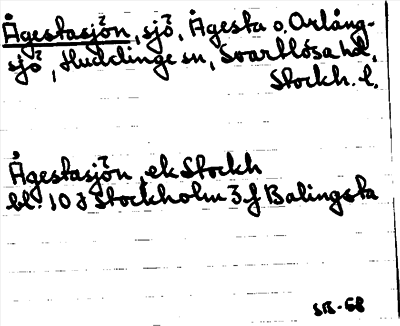 Ågestasjön, sjö, Ågesta o. Orlång-
sjö, Huddinge sn, Svartlösa hd,
Stockh. l.
Ågestasjön, ek Stockh
bl. 10 I Stockholm 3 f Balingsta
SB-68